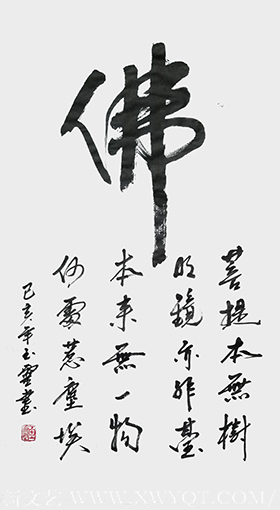 佛
菩提本無樹
明鏡亦非臺
本来無一物
何處惹塵埃
己亥年玉雲書
新文艺 WWW.XWYQT.COM